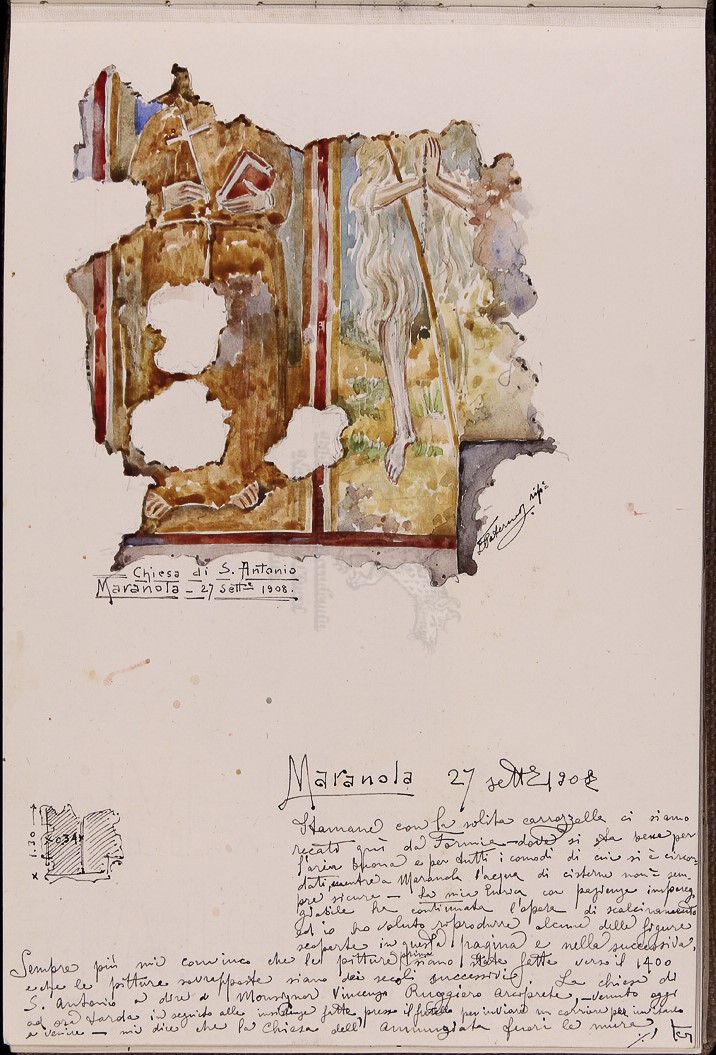 Chiesa di S. Antonio
Maranola - 27 Sett.e 1908.
Maranola 27 sett.e 1908
Stamane con la solita carrozzella ci siamo
recati quì da Formia - dove si sta bene per
l'aria buona e per tutti i comodi di cui si è circon-
dati, mentre a Maranola l'acqua di cisterne non è sem-
pre sicura - La mia Enrica con pazienza impareg-
giabile ha continuata l'opera di scalcinamento
ed io ho voluto riprodurre alcune delle figure
scoperte in questa pagina e nella successiva.
Sempre più mi convinco che le pitture prime siano state fatte verso il 1400
e che le pitture sovrapposte siano dei secoli successivi. La chiesa di
S. Antonio a dire di Monsignor Vincenzo Ruggiero Arciprete, - venuto oggi
ad ora tarda in seguito alle insistenze fatte presso il per inviare un corriere per
e venire - mi dice che la Chiesa dell' Annunziata fuori le mura
1.30
0.34